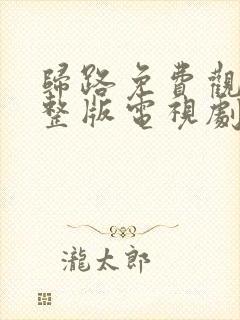 歸路免費觀
整版電視劇
瀧太郎